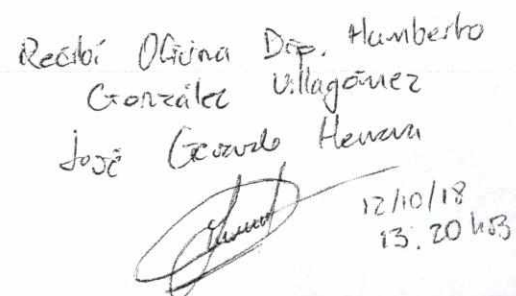 Recibí Oficina Dip. Humberto
González Villagómez
José Gerardo Herrera
12/10/18
13.20 hrs